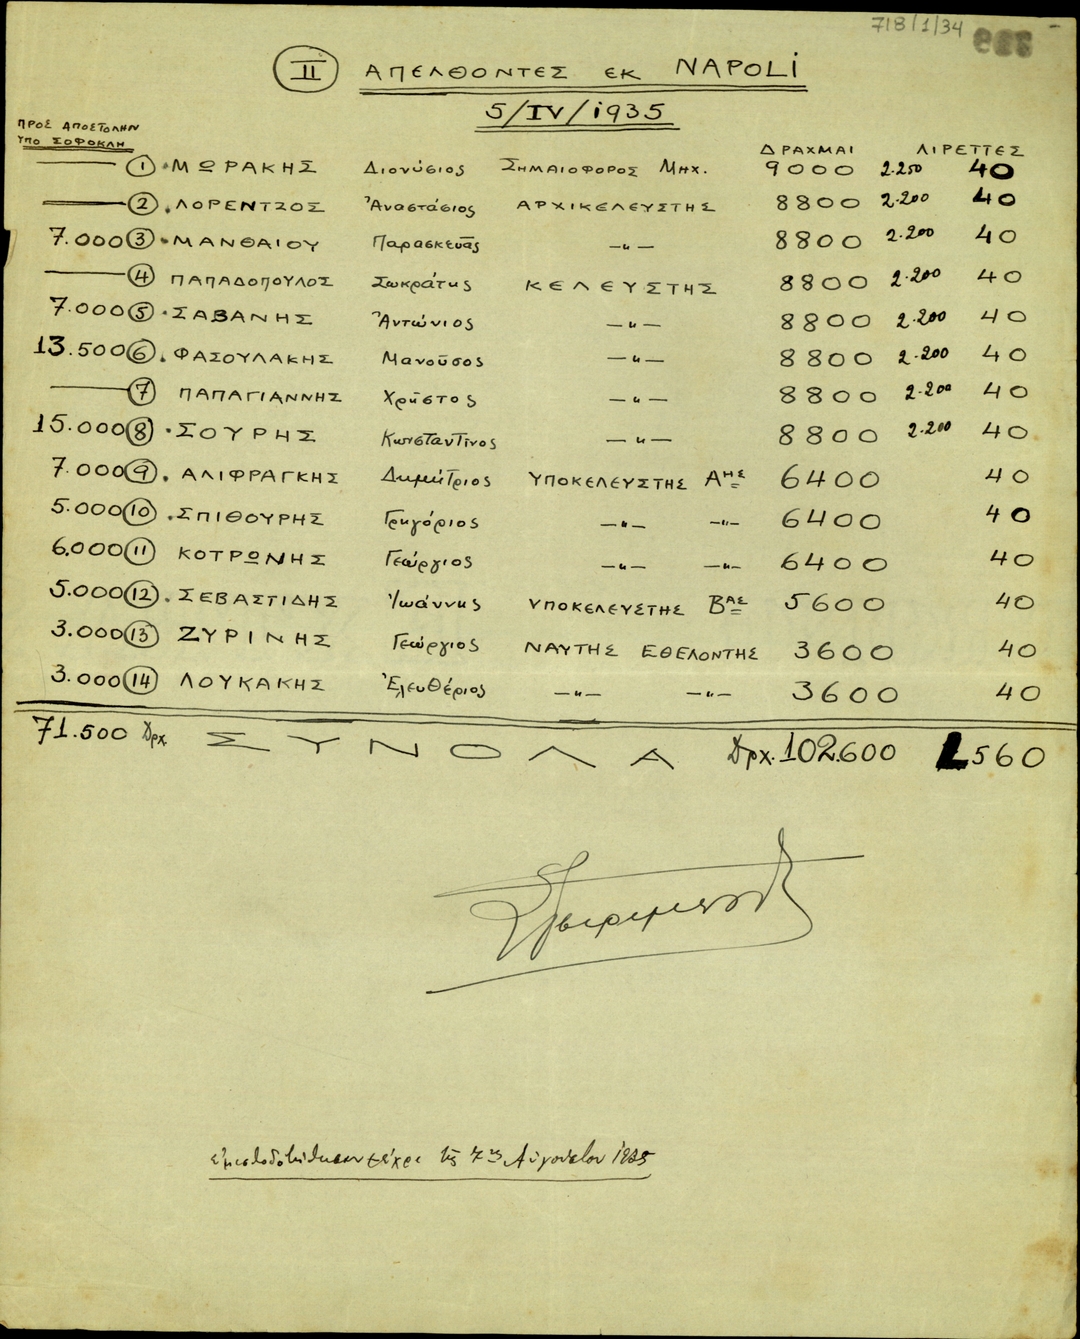 718/1/34
II ΑΠΕΛΘΟΝΤΕΣ ΕΚ NAPOLI
5/IV/1935
ΠΡΟΣ ΑΠΟΣΤΟΛΗΝ
ΥΠΟ ΣΟΦΟΚΛΗ
ΔΡΑΧΜΑΙ ΛΙΡΕΤΤΕΣ
— 1 ΜΩΡΑΚΗΣ Διονύσιος ΣΗΜΑΙΟΦΟΡΟΣ ΜΗΧ. 9000 2.250 40
— 2 ΛΟΡΕΝΤΖΟΣ Ἀναστάσιος ΑΡΧΙΚΕΛΕΥΣΤΗΣ 8800 2.200 40
7.000 3 ΜΑΝΘΑΙΟΥ Παρασκευᾶς —〃— 8800 2.200 40
— 4 ΠΑΠΑΔΟΠΟΥΛΟΣ Σωκράτης ΚΕΛΕΥΣΤΗΣ 8800 2.200 40
7.000 5 ΣΑΒΑΝΗΣ Ἀντώνιος —〃— 8800 2.200 40
13.500 6 ΦΑΣΟΥΛΑΚΗΣ Μανοῦσος —〃— 8800 2.200 40
— 7 ΠΑΠΑΓΙΑΝΝΗΣ Χρῆστος —〃— 8800 2.200 40
15.000 8 ΣΟΥΡΗΣ Κωνσταντῖνος —〃— 8800 2.200 40
7.000 9 ΑΛΙΦΡΑΓΚΗΣ Δημήτριος ΥΠΟΚΕΛΕΥΣΤΗΣ Αης 6400 40
5.000 10 ΣΠΙΘΟΥΡΗΣ Γρηγόριος —〃— —〃— 6400 40
6.000 11 ΚΟΤΡΩΝΗΣ Γεώργιος —〃— —〃— 6400 40
5.000 12 ΣΕΒΑΣΤΙΔΗΣ Ἰωάννης ΥΠΟΚΕΛΕΥΣΤΗΣ Βας 5600 40
3.000 13 ΖΥΡΙΝΗΣ Γεώργιος ΝΑΥΤΗΣ ΕΘΕΛΟΝΤΗΣ 3600 40
3.000 14 ΛΟΥΚΑΚΗΣ Ἐλευθέριος —〃— —〃— 3600 40
71.500 Δρχ ΣΥΝΟΛΑ Δρχ. 102.600 L560
ἐμισθοδοτήθησαν μέχρι τῆς 7ης Αὐγούστου 1935